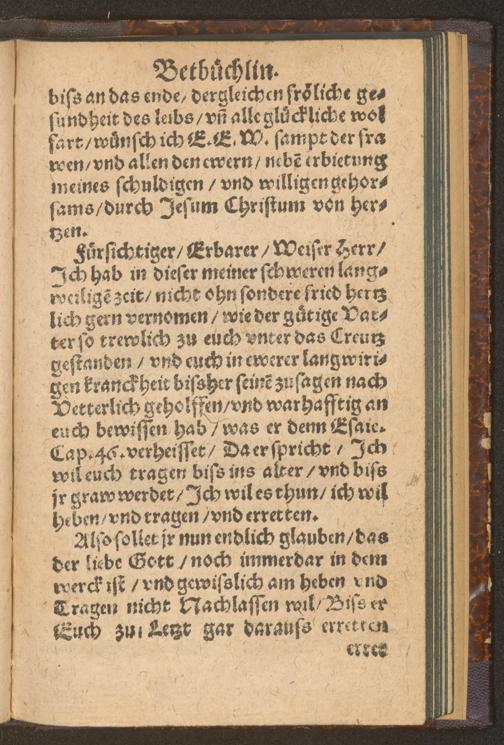 Betbüchlin.
biſs an das ende/ dergleichen fröliche ge⸗
ſundheit des leibs/ vñ alle glückliche wol
fart/ wünſch ich E. E. W. ſampt der fra
wen/ vnd allen den ewern/ nebē erbietung
meines ſchuldigen / vnd willigen gehor⸗
ſams/ durch Jeſum Chriſtum von her⸗
tzen.
Fürſichtiger/ Erbarer / Weiſer Herr/
Jch hab in dieſer meiner ſchweren lang⸗
weiligē zeit/ nicht ohn ſondere fried hertz
lich gern vernomen/ wie der gütige Vat⸗
ter ſo trewlich zu euch vnter das Creutz
geſtanden / vnd euch in ewerer langwiri⸗
gen kranckheit biſsher ſeinē zuſagen nach
Vetterlich geholffen/ vnd warhafftig an
euch bewiſſen hab / was er denn Eſaie.
Cap. 46. verheiſſet/ Da er ſpricht / Jch
wil euch tragen biſs ins alter / vnd biſs
jr graw werdet/ Jch wil es thun/ ich wil
heben/ vnd tragen / vnd erretten.
Alſo ſollet jr nun endlich glauben/ das
der liebe Gott / noch immerdar in dem
werck iſt / vnd gewiſslich am heben vnd
Tragen nicht Nachlaſſen wil/ Biſs er
Euch zu Letzt gar darauſs erretten
erret